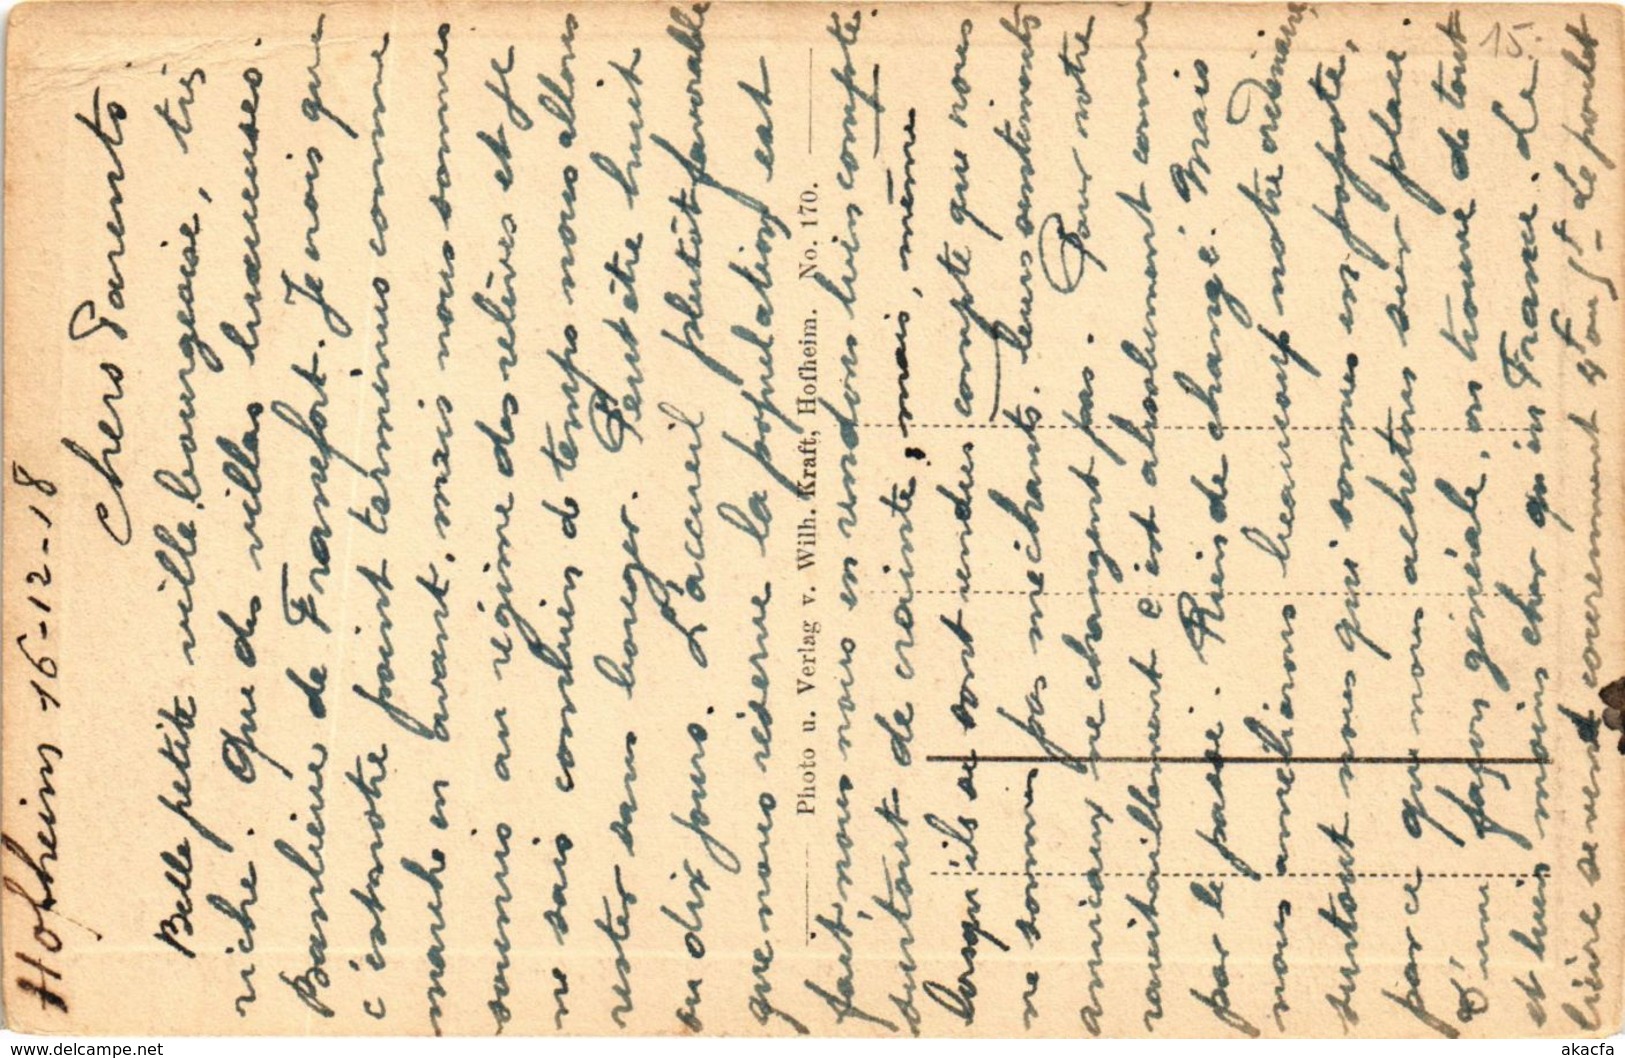 Hofheim 16-12-18
Chers Parents
Belle petite ville bourgeoise, très
riche. Que des villas luxueuses.
Banlieue de Francfort. Je crois que
c'est notre point terminus comme
marche en avant, mais nous sommes
soumis au régime des relèves et je
ne sais combien de temps nous allons
rester sans bouger. Peut être huit
ou dix jours. L'accueil plutôt favorable
que nous réserve la population est
fait, nous nous en rendons bien compte
surtout de crainte, mais, même
lorsqu'ils se sont rendus compte que nous
ne sommes pas méchants. leurs sentiments
amicaux ne changent pas. Pour notre
ravitaillement c'est absolument comme
par le passé. Rien de changé. Mais
nous améliorons beaucoup notre ordinaire
surtout nous qui sommes en popote,
par ce que nous achetons sur place.
D'une façon générale, on trouve de tout
et bien moins cher qu'en France. Le
lièvre se vend couremment 4F ou 5F - le poulet
15.
Photo u. Verlag v. Wilh. Kraft, Hofheim. No. 170.
delcampe.net
akacfa